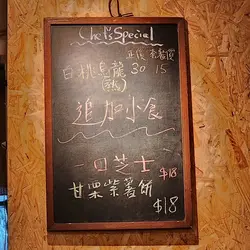 Chef's Special
正價 套餐價
白桃烏龍 30 15
(熱)
追加小食
一口芝士 $18
甘栗紫薯餅
$18